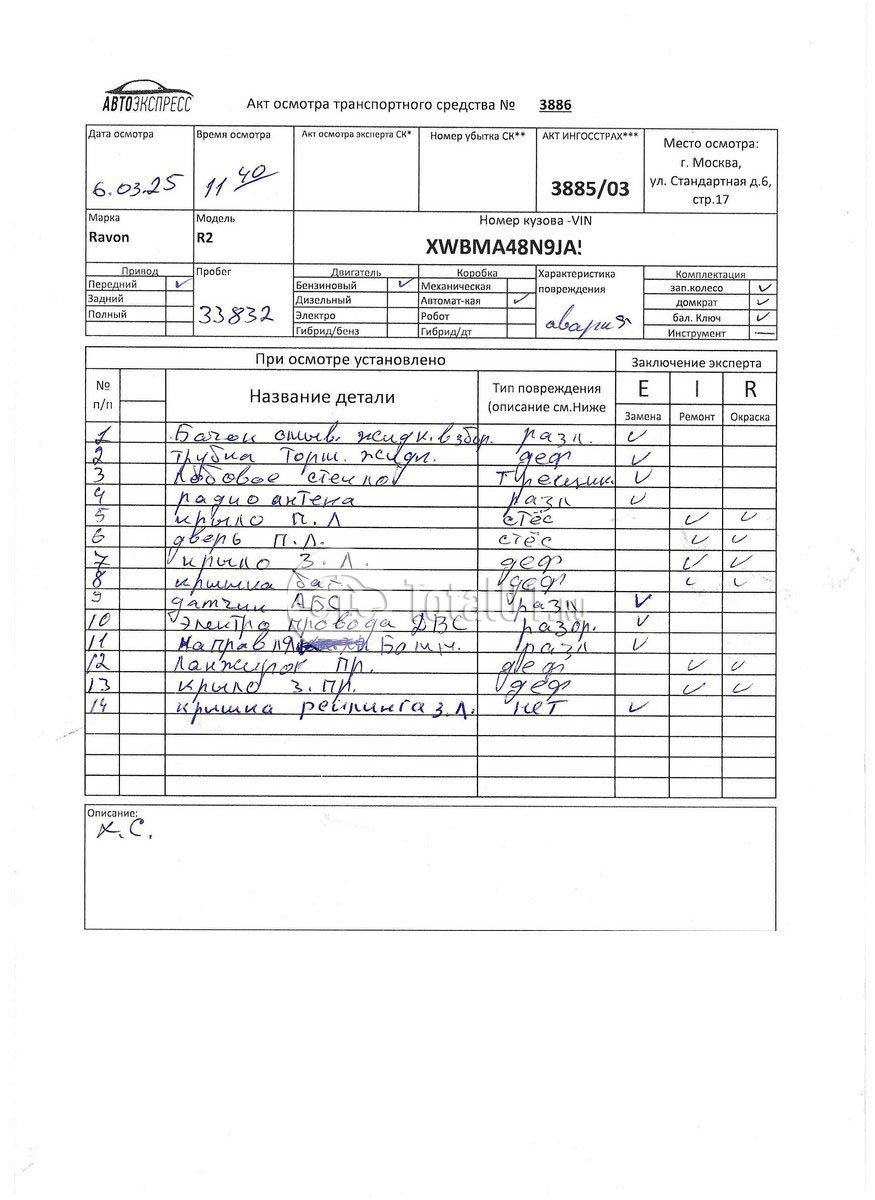 АВТОЭКСПРЕСС
Акт осмотра транспортного средства № 3886
Дата осмотра Время осмотра Акт осмотра эксперта СК* Номер убытка СК** АКТ ИНГОССТРАХ*** Место осмотра:
6.03.25 11 40 3885/03 г. Москва,
ул. Стандартная д.6,
стр.17
Марка Модель Номер кузова -VIN
Ravon R2 XWBMA48N9JA!
Привод Пробег Двигатель Коробка Характеристика повреждения Комплектация
Передний ✓ 33832 Бензиновый ✓ Механическая авария зап.колесо ✓
Задний Дизельный Автомат-кая ✓ домкрат ✓
Полный Электро Робот бал. Ключ ✓
Гибрид/бенз Гибрид/дт Инструмент —
При осмотре установлено Заключение эксперта
№ п/п Название детали Тип повреждения (описание см.Ниже E I R
Замена Ремонт Окраска
1 Бачок омыв. жидк. в збор. разл. ✓
2 трубка Торм. жидк. деф ✓
3 Лобовое стекло трещин. ✓
4 радио антена разл ✓
5 крыло П.Л стёс ✓ ✓
6 дверь П.Л. стёс ✓ ✓
7 крыло З.Л. деф ✓ ✓
8 крышка баг деф ✓ ✓
9 датчик АБС разл ✓
10 Электро провода ДВС разор. ✓
11 Направля Бамп. разл ✓
12 Ланжирог Пр. деф ✓ ✓
13 крыло З.Пр. деф ✓ ✓
14 крышка рейлинга З.Л. нет ✓
Total01.ru
Описание:
Х.С.